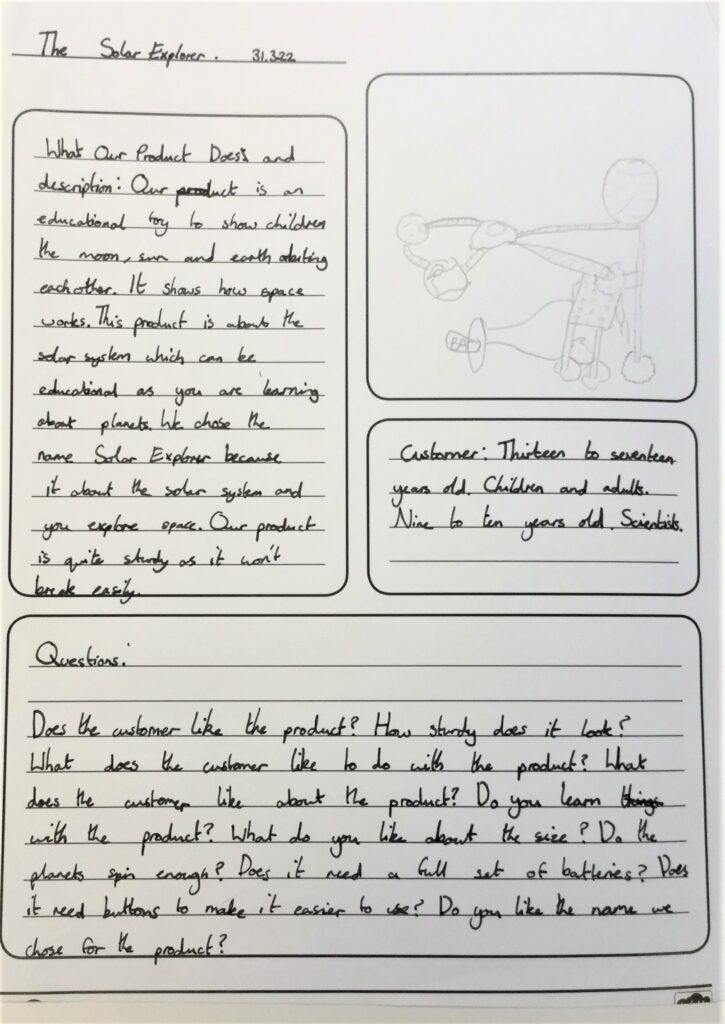 The Solar Explorer. 31.3.22
What Our Product Does: and
description: Our product is an
educational toy to show children
the moon, sun and earth orbiting
eachother. It shows how space
works. This product is about the
solar system which can be
educational as you are learning
about planets. We chose the
name Solar Explorer because
it about the solar system and
you explore space. Our product
is quite sturdy as it won't
break easily.
Customer: Thirteen to seventeen
years old. Children and adults.
Nine to ten years old. Scientists.
Questions:
Does the customer like the product? How sturdy does it look?
What does the customer like to do with the product? What
does the customer like about the product? Do you learn things
with the product? What do you like about the size? Do the
planets spin enough? Does it need a full set of batteries? Does
it need buttons to make it easier to use? Do you like the name we
chose for the product?